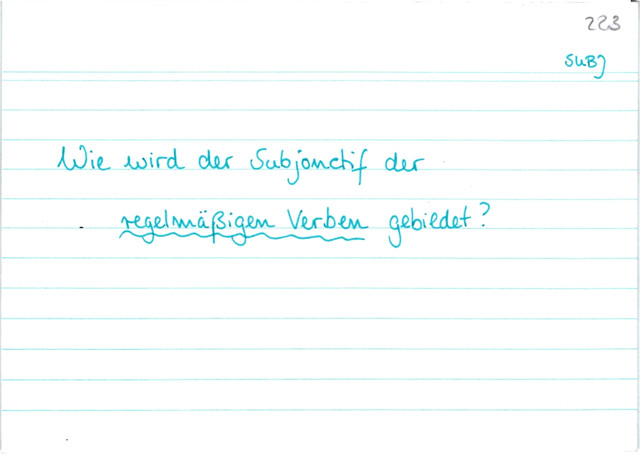 223
SUBJ
Wie wird der Subjonctif der
regelmäßigen Verben gebildet?